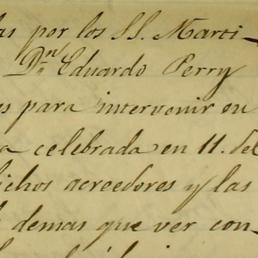 las por los SS. Marti-
Dn. Eduardo Perry
os para intervenir en
a celebrada en 11. del
dichos acreedores y las
demas que ver con-